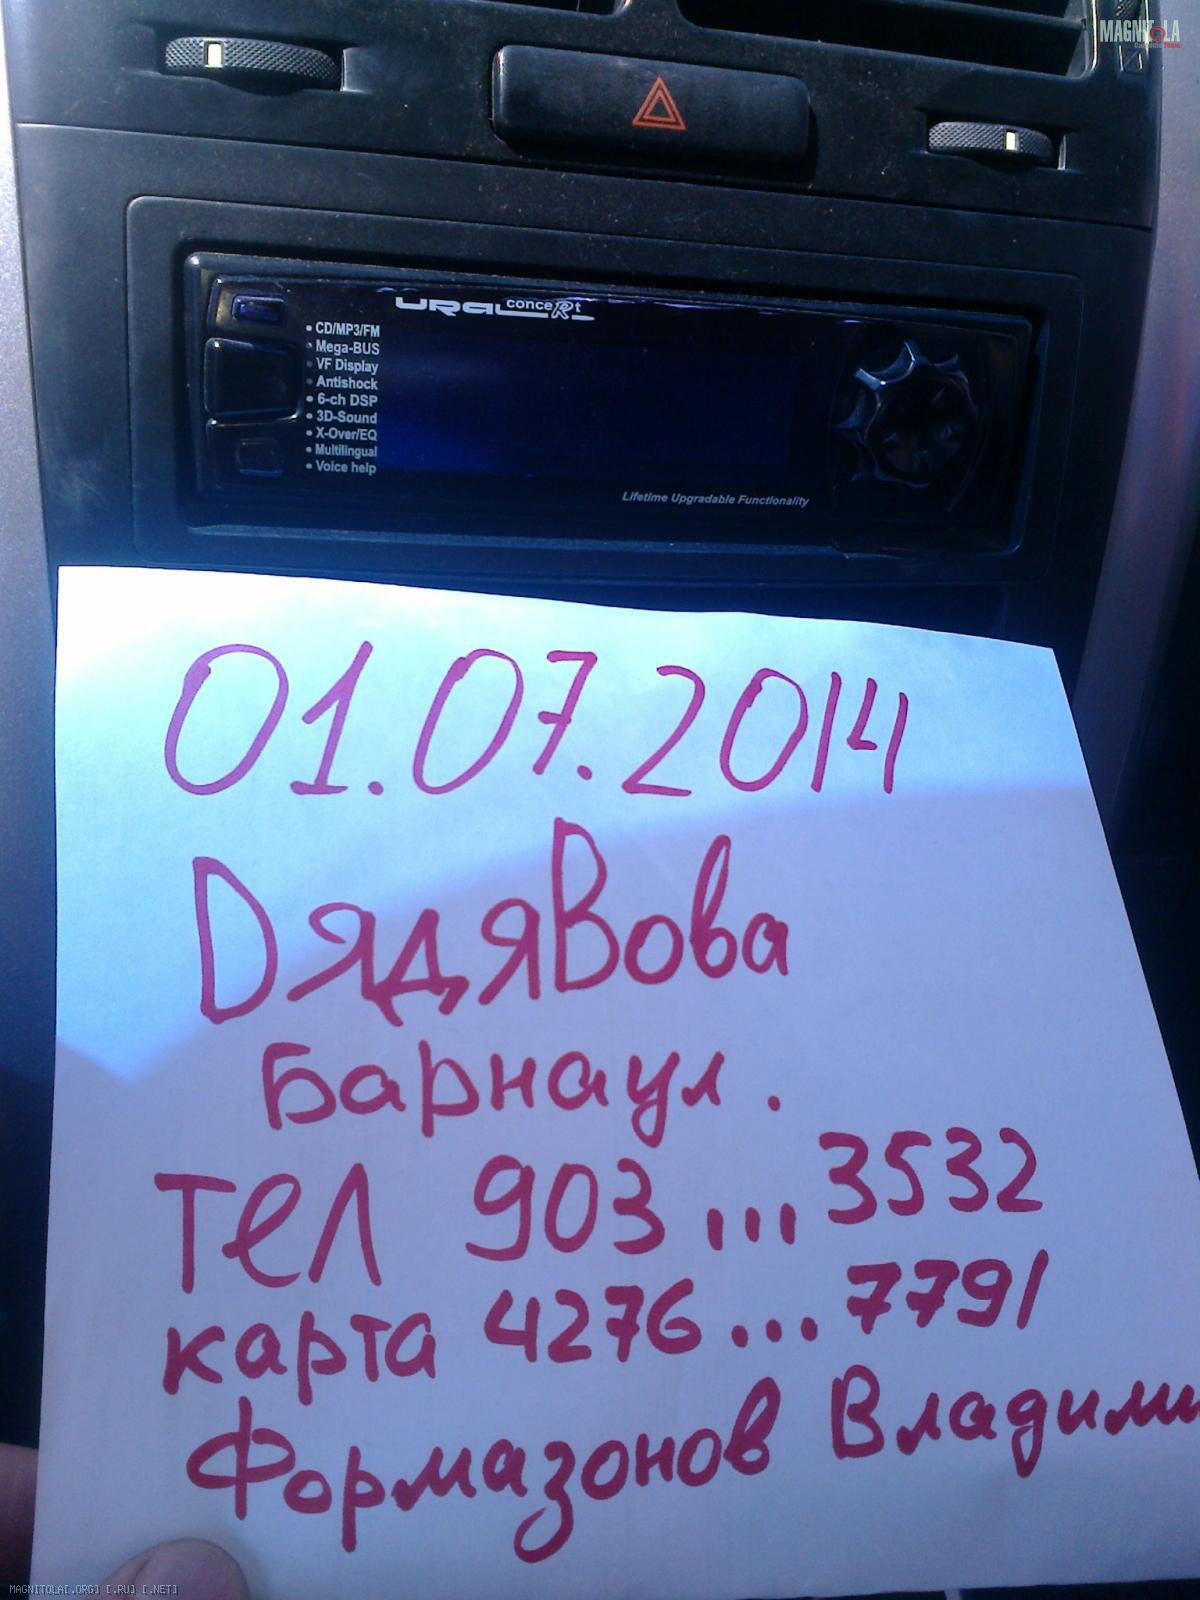 MAGNITOLA
URAL concert
• CD/MP3/FM
• Mega-BUS
• VF Display
• Antishock
• 6-ch DSP
• 3D-Sound
• X-Over/EQ
• Multilingual
• Voice help
Lifetime Upgradable Functionality
01.07.2014
ДядяВова
Барнаул.
тел 903...3532
карта 4276...7791
Формазонов Владими
MAGNITOLA[.ORG] [.RU] [.NET]